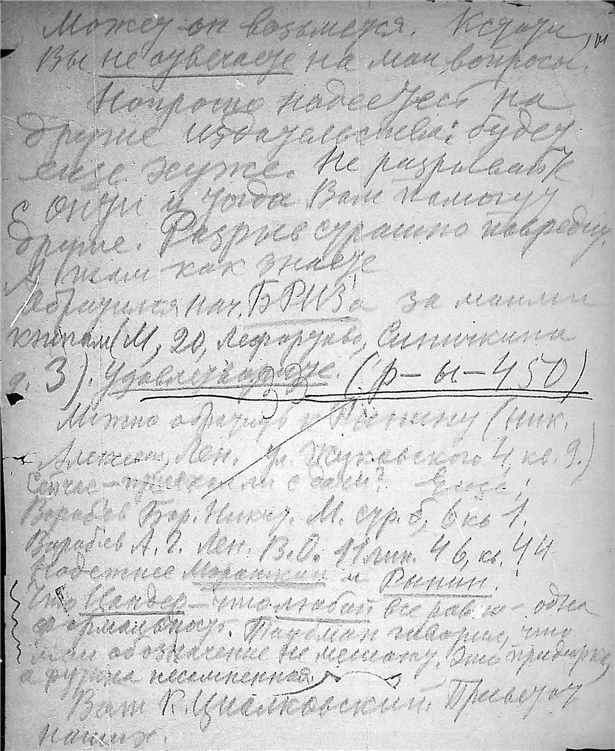 Может он возьмется. Кстати,
Вы не отвечаете на мои вопросы.
Напрасно надеетесь на
другие издательства: будет
еще хуже. Не разрывайте
с ОНТИ и тогда Вам помогут
другие. Разрыв страшно повредит
и там как знаете
Обратился нач. БРИЗ'а за моими
книгами (М, 20, Лефортово, Синичкина
д. 3). Удовлетворите. (р-ы-450)
Можно обратить к Рынину (Ник.
Алексеев, Лен. ул. Жуковского 4, кв. 9.)
Сейчас приехали с дачи. Еще:
Воробьев Бор. Никит. М. стр. б, 6 кв 1.
Воробьев А. Г. Лен. В.О. 11 лин. 46, кв. 44
Надежнее и Рынин.
Что Цандер - что любой все равно - одна
формальность. Таубман говорил, что
мои обозначения не мешают. Это придирка,
а фирма несомненная.
Ваш К. Циолковский. Привет от
наших.